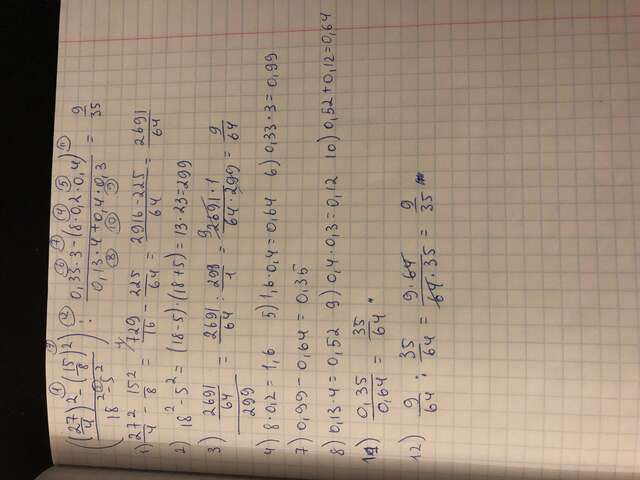 (((27/4)² - (15/8)²) / (18² - 5²)) : (0,33·3 - (8·0,2·0,4)) / (0,13·4 + 0,4·0,3) = 9/35
1) 27²/4 - 15²/8 = 729/16 - 225/64 = (2916 - 225)/64 = 2691/64
2) 18² - 5² = (18-5)·(18+5) = 13·23 = 299
3) (2691/64)/299 = 2691/64 : 299/1 = (2691·1)/(64·299) = 9/64
4) 8·0,2 = 1,6 5) 1,6·0,4 = 0,64 6) 0,33·3 = 0,99
7) 0,99 - 0,64 = 0,35
8) 0,13·4 = 0,52 9) 0,4·0,3 = 0,12 10) 0,52 + 0,12 = 0,64
11) 0,35/0,64 = 35/64
12) 9/64 : 35/64 = (9·64)/(64·35) = 9/35